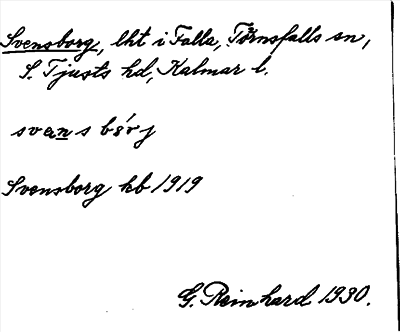 Svensborg, lht i Falla, Törnsfalls sn,
S. Tjusts hd, Kalmar l.
Svensborg kb 1919
G. Reinhard 1930.